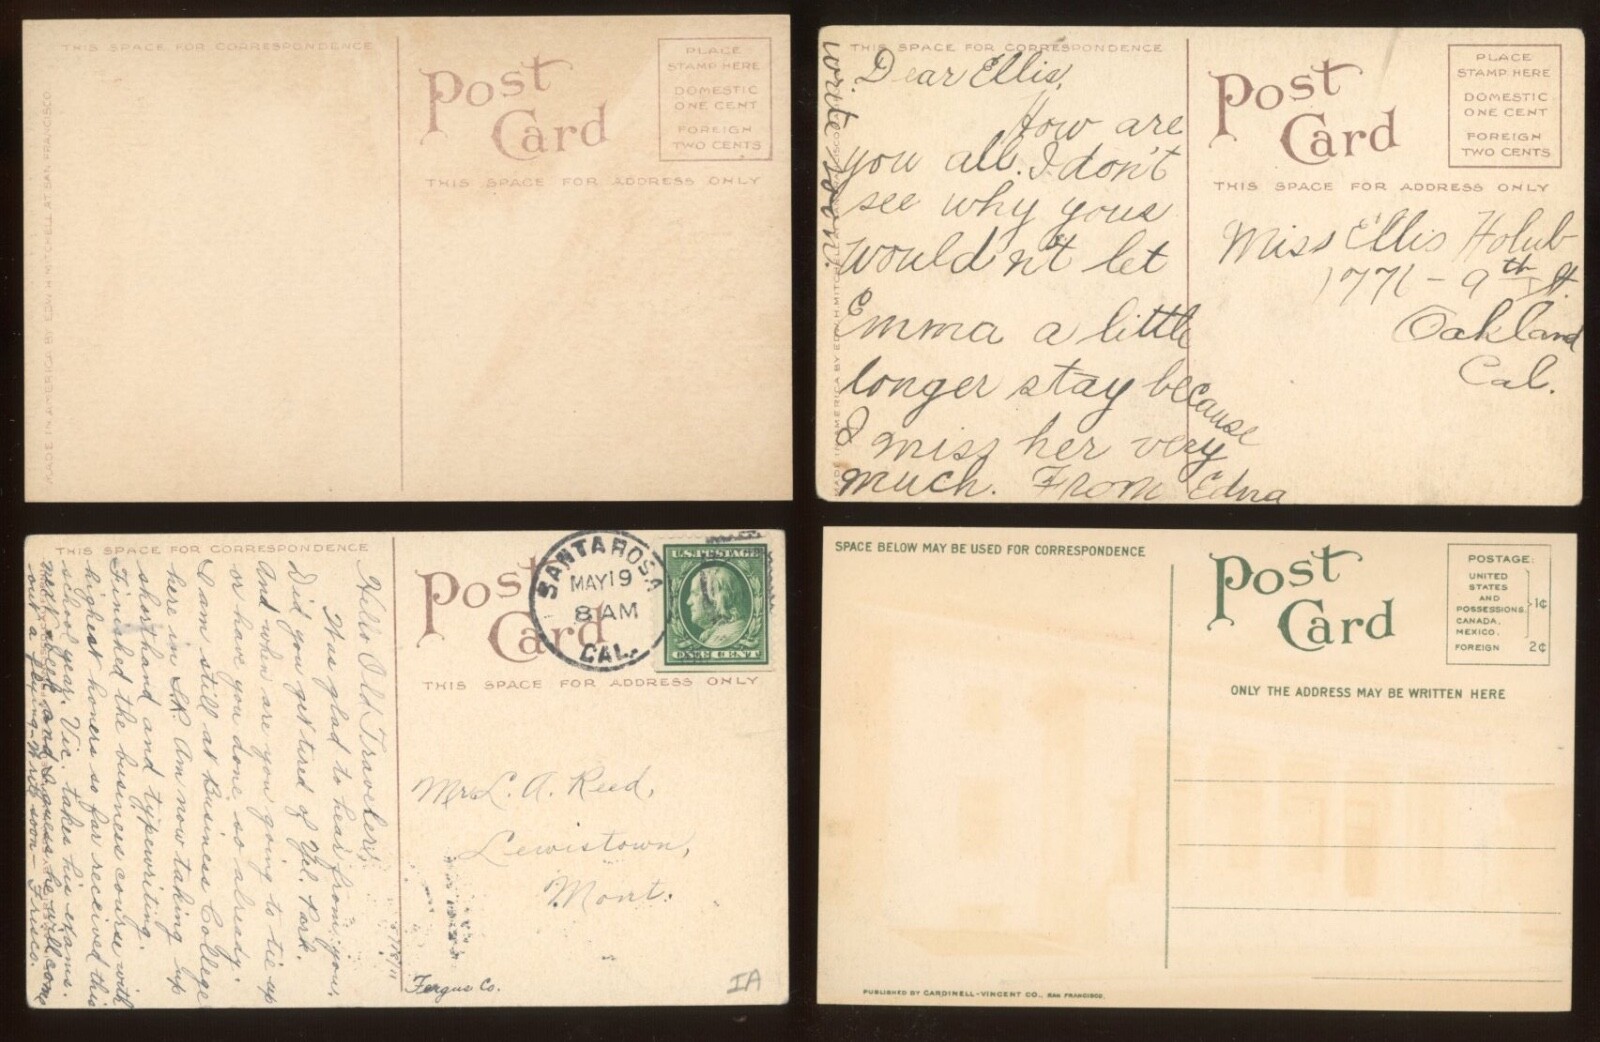 THIS SPACE FOR CORRESPONDENCE
Post
Card
PLACE
STAMP HERE
DOMESTIC
ONE CENT
FOREIGN
TWO CENTS
THIS SPACE FOR ADDRESS ONLY
MADE IN AMERICA BY EDW H MITCHELL AT SAN FRANCISCO
THIS SPACE FOR CORRESPONDENCE
Dear Ellis,
How are
you all. I don't
see why yous
wouldn't let
Emma a little
longer stay because
I miss her very
much. From Edna
write soon.
Post
Card
PLACE
STAMP HERE
DOMESTIC
ONE CENT
FOREIGN
TWO CENTS
THIS SPACE FOR ADDRESS ONLY
Miss Ellis Holub
1771 - 9th St.
Oakland
Cal.
THIS SPACE FOR CORRESPONDENCE
Hello Old Travelers,
Was glad to hear from you.
Did you get tired of Yel. Park.
And when are you going to tie up
or have you done so already.
I am still at Business College
here in S.R. Am now taking up
shorthand and typewriting.
Finished the business course with
highest honers so far received this
school year. Vic. takes his exams.
next week and I guess he will come
out a flying. Write soon— Frisco.
Post
Card
SANTA ROSA
MAY 19
8 AM
CAL.
U.S. POSTAGE
ONE CENT
THIS SPACE FOR ADDRESS ONLY
Mrs L. A. Reed,
Lewistown,
Mont.
Fergus Co.
IA
SPACE BELOW MAY BE USED FOR CORRESPONDENCE
Post
Card
POSTAGE:
UNITED
STATES
AND
POSSESSIONS,
CANADA,
MEXICO.
1¢
FOREIGN 2¢
ONLY THE ADDRESS MAY BE WRITTEN HERE
PUBLISHED BY CARDINELL-VINCENT CO., SAN FRANCISCO.